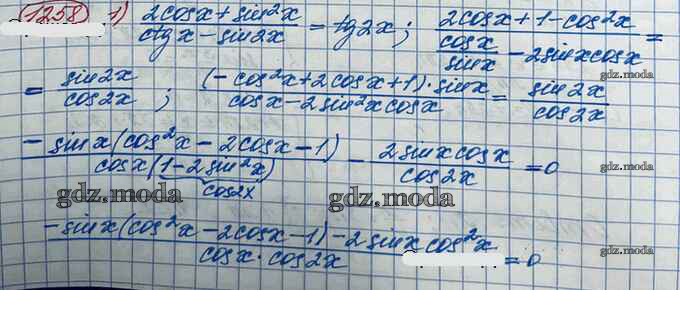 1258 1) (2cosx + sin²x)/(ctgx - sin2x) = tg2x; (2cosx + 1 - cos²x)/(cosx/sinx - 2sinxcosx) =
= sin2x/cos2x; ((-cos²x + 2cosx + 1)·sinx)/(cosx - 2sin²xcosx) = sin2x/cos2x
gdz.moda
(-sinx(cos²x - 2cosx - 1))/(cosx(1 - 2sin²x)) - 2sinxcosx/cos2x = 0
gdz.moda
cos2x
gdz.moda gdz.moda
(-sinx(cos²x - 2cosx - 1) - 2sinxcos²x)/(cosx·cos2x) = 0
gdz.moda